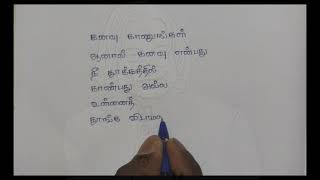 கனவு காணுங்கள்
ஆனால் கனவு என்பது
நீ தூக்கத்தில்
காண்பது அல்ல
உன்னைத்
தூங்க விடாம